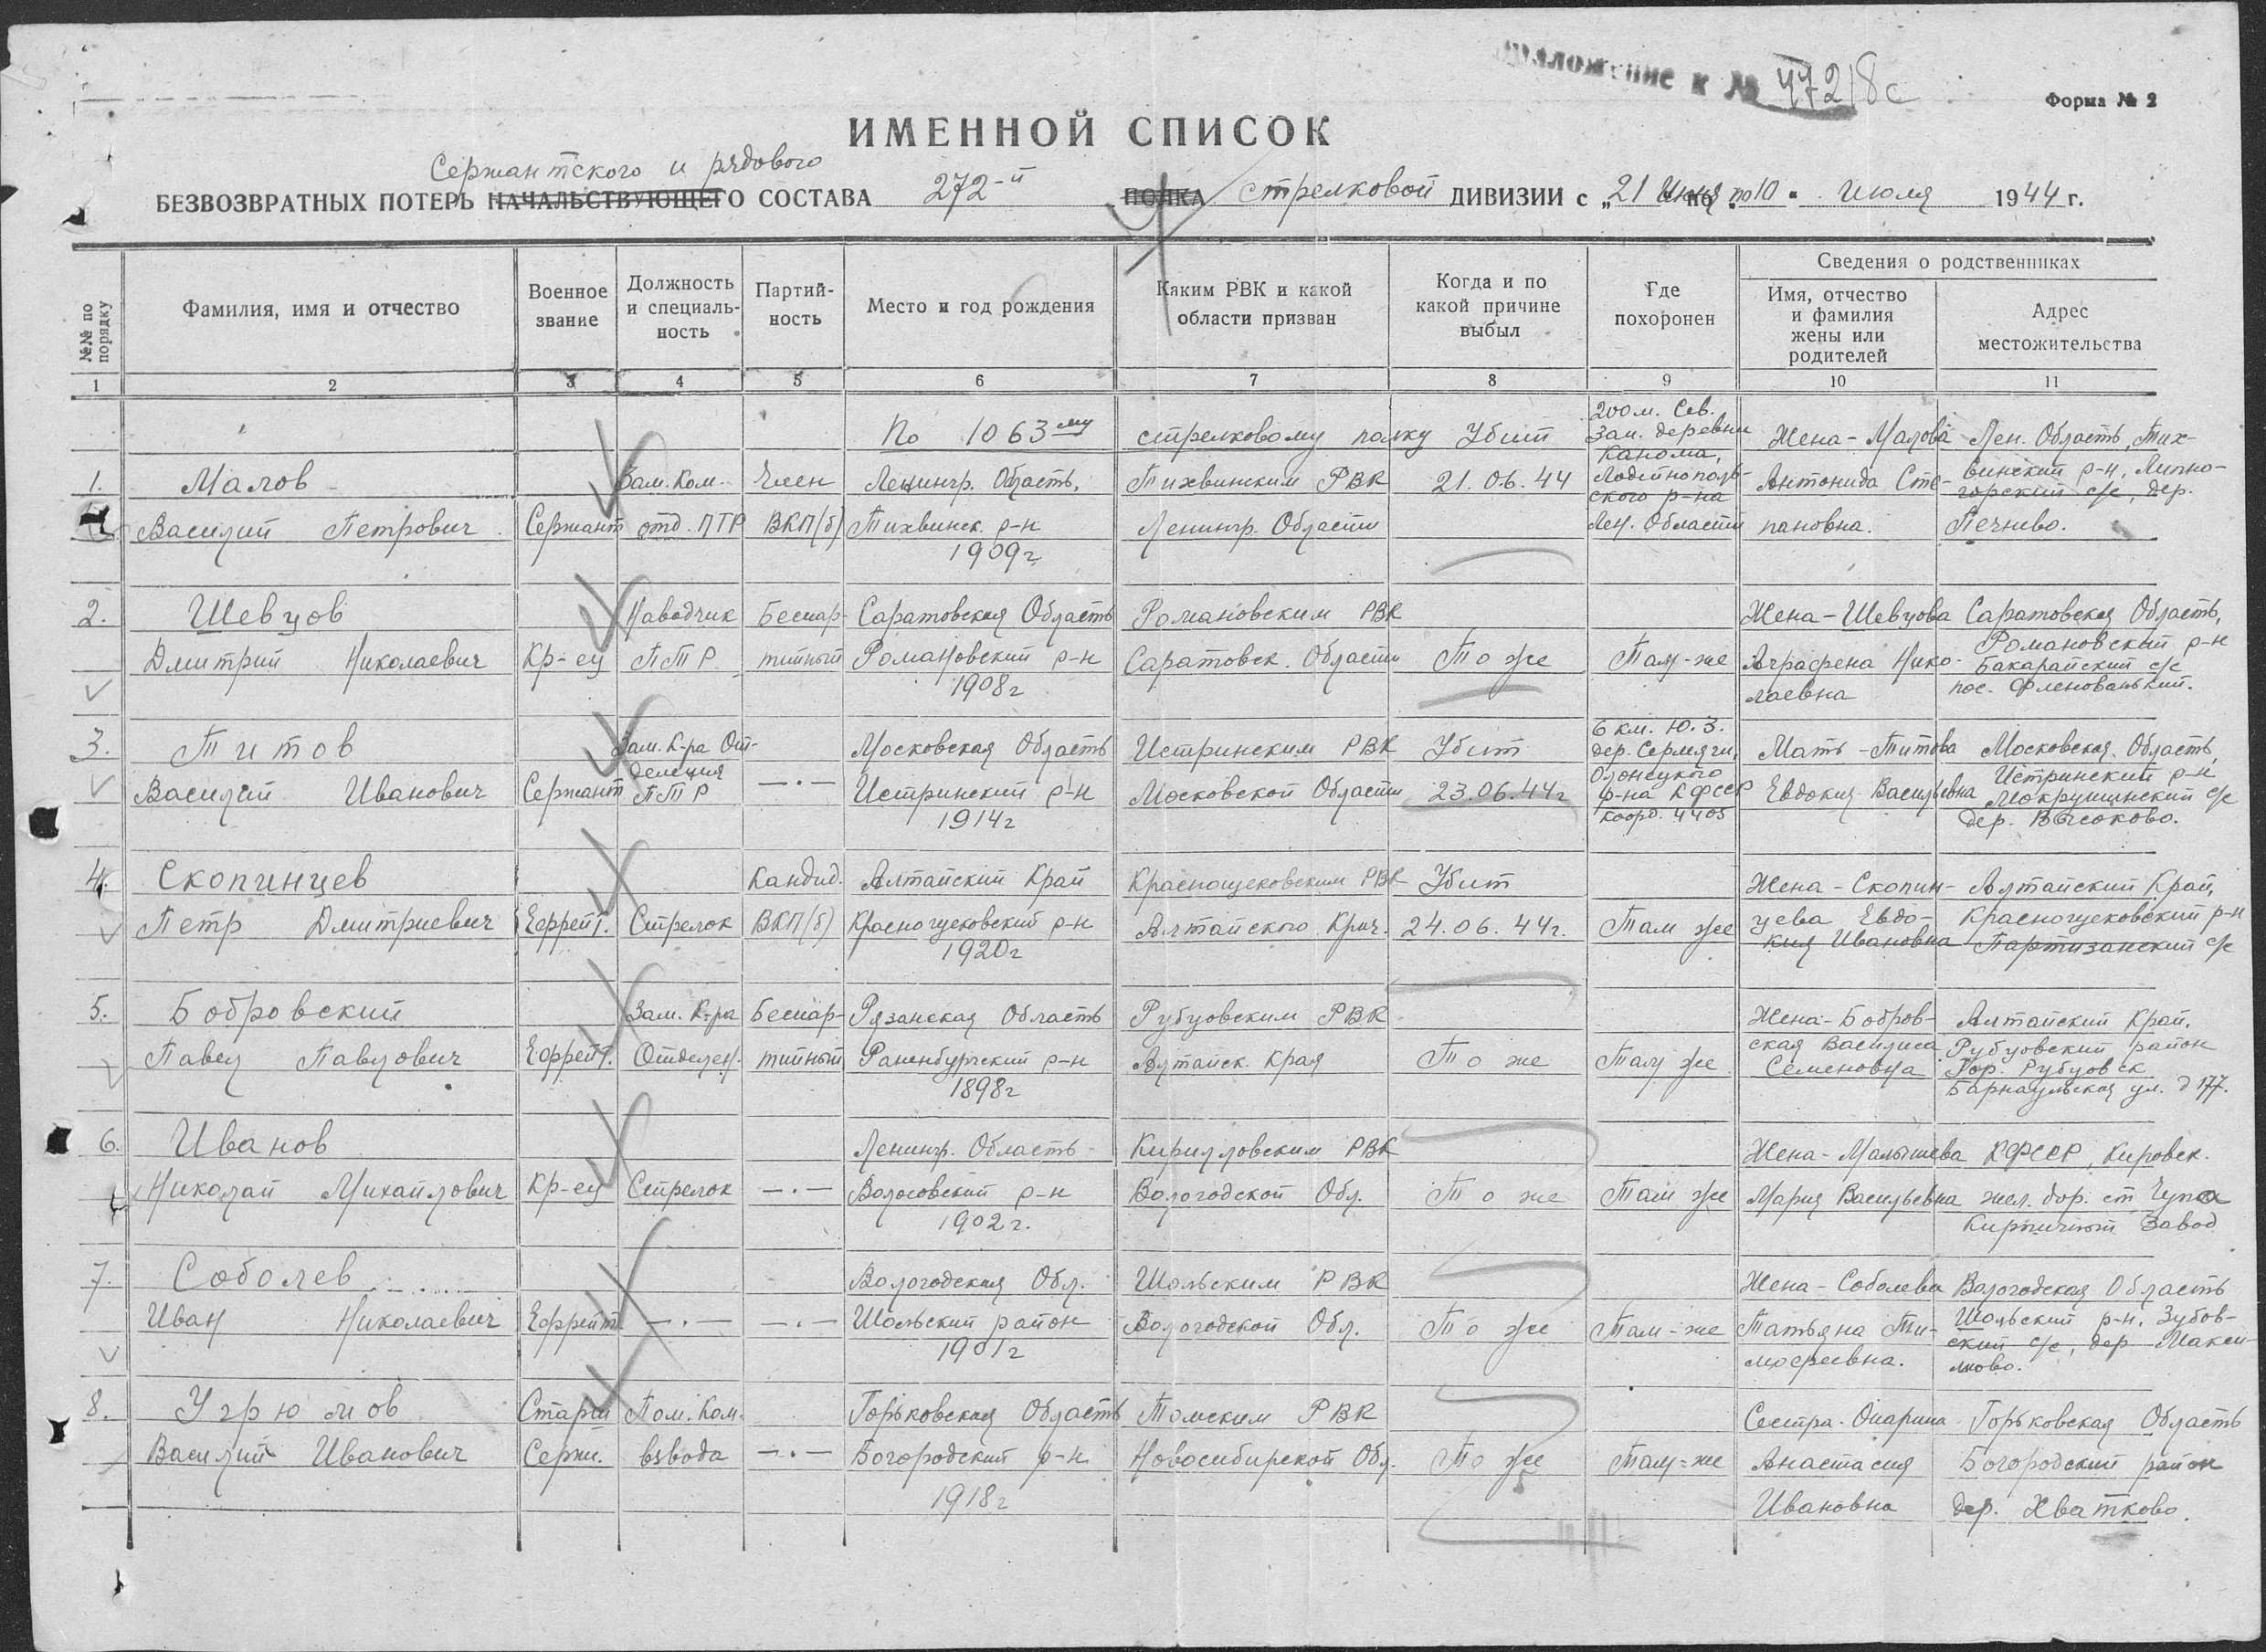 Приложение к № 47218с
Форма № 2
ИМЕННОЙ СПИСОК
Сержантского и рядового
БЕЗВОЗВРАТНЫХ ПОТЕРЬ НАЧАЛЬСТВУЮЩЕГО СОСТАВА 272-й ПОЛКА стрелковой ДИВИЗИИ с „21 Июня по 10 " июля 1944 г.
№№ по порядку
Фамилия, имя и отчество
Военное звание
Должность и специальность
Партийность
Место и год рождения
Каким РВК и какой области призван
Когда и по какой причине выбыл
Где похоронен
Сведения о родственниках
Имя, отчество и фамилия жены или родителей
Адрес местожительства
1 2 3 4 5 6 7 8 9 10 11
По 1063му стрелковому полку
1. Малов
Василий Петрович
Сержант
Зам. Ком. отд. ПТР
Член ВКП(б)
Ленингр. Область,
Тихвинск. р-н
1909г
Тихвинским РВК
Ленингр. Области
Убит
21.06.44
200 м. Сев.
Зап. деревни
Канома,
Лодейнополь-
ского р-на
Лен. Области
Жена - Малова
Антонида Сте-
пановна.
Лен. Область, Тих-
винский р-н, Липно-
горский с/с, дер.
Печнево.
2. Шевцов
Дмитрий Николаевич
Кр-ец
Наводчик
ПТР
Беспар-
тийный
Саратовская Область
Романовский р-н
1908г
Романовским РВК
Саратовск. Области
То же
Там-же
Жена - Шевцова
Аграфена Нико-
лаевна
Саратовская Область,
Романовский р-н
Бакарайский с/с
пос.
3. Титов
Василий Иванович
Сержант
Зам. К-ра От-
деления
ПТР
—·—
Московская Область
Истринский р-н
1914г
Истринским РВК
Московской Области
Убит
23.06.44г
6 км. Ю.З.
дер. Сермяги,
Олонецкого
р-на КФССР
коорд. 4405
Мать - Титова
Евдокия Васильевна
Московская Область,
Истринский р-н
Мокрушинский с/с
дер. Высоково.
4. Скопинцев
Петр Дмитриевич
Ефрейт.
Стрелок
Кандид.
ВКП(б)
Алтайский Край
Краснощековский р-н
1920г
Краснощековским РВК
Алтайского Края.
Убит
24.06.44г.
Там же
Жена - Скопин-
цева Евдо-
кия Ивановна
Алтайский Край,
Краснощековский р-н
Партизанский с/с
5. Бобровский
Павел Павлович
Ефрейт.
Зам. К-ра
Отделен.
Беспар-
тийный
Рязанская Область
Раненбургский р-н
1898г
Рубцовским РВК
Алтайск. Края
То же
Там же
Жена - Бобров-
ская Василиса
Семеновна
Алтайский Край.
Рубцовский район
Гор. Рубцовск
Барнаульская ул. д 177.
6. Иванов
Николай Михайлович
Кр-ец
Стрелок
—·—
Ленингр. Область
Волосовский р-н
1902г.
Кирилловским РВК
Вологодской Обл.
То же
Там же
Жена - Малышева
Мария Васильевна
КФССР, Кировск.
жел. дор. ст. Чупа
Кирпичный Завод
7. Соболев
Иван Николаевич
Ефрейт
—·—
—·—
Вологодская Обл.
Шольский район
1901г
Шольским РВК
Вологодской Обл.
То же
Там-же
Жена - Соболева
Татьяна Ти-
мофеевна.
Вологодская Область
Шольский р-н. Зубов-
ский с/с, дер Макси-
мово.
8. Угрюмов
Василий Иванович
Старш
Серж.
Пом. Ком.
взвода
—·—
Горьковская Область
Богородский р-н
1918г
Томским РВК
Новосибирской Обл.
То же
Там-же
Сестра - Опарина
Анастасия
Ивановна
Горьковская Область
Богородский район
дер. Хватково.